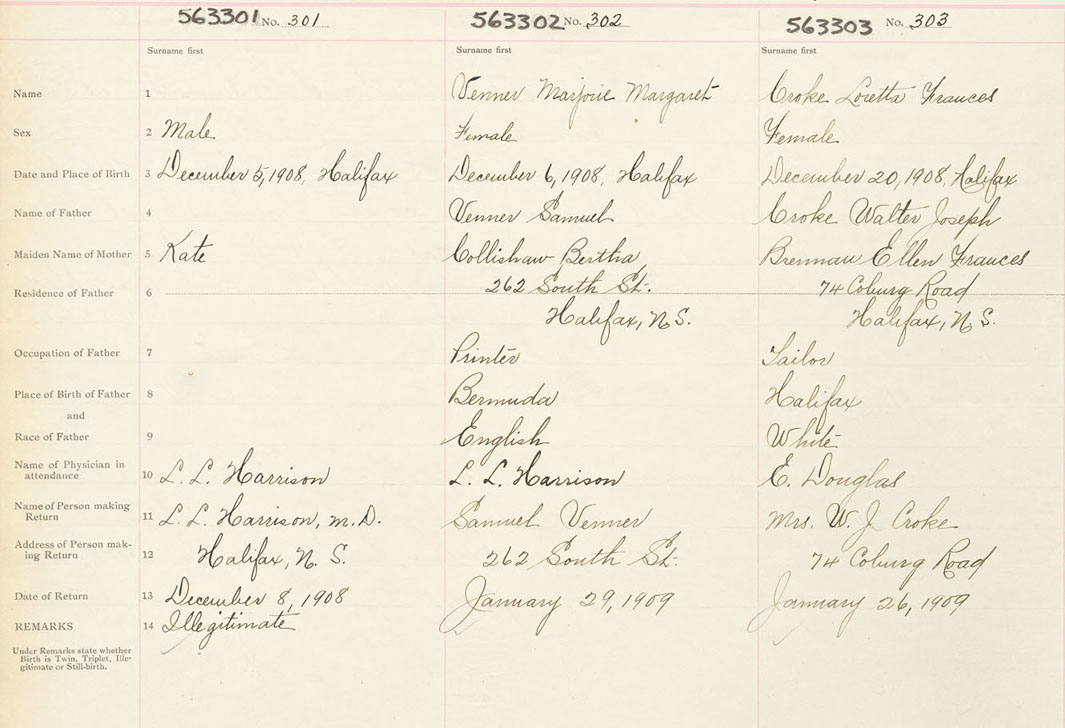 563301 No. 301 563302 No. 302 563303 No. 303
Surname first Surname first Surname first
Name 1 Venner Marjorie Margaret Croke Loretta Frances
Sex 2 Male Female Female
Date and Place of Birth 3 December 5, 1908, Halifax December 6, 1908, Halifax December 20, 1908, Halifax
Name of Father 4 Venner Samuel Croke Walter Joseph
Maiden Name of Mother 5 Kate Collishaw Bertha Brennan Ellen Frances
Residence of Father 6 262 South St. 74 Coburg Road
Halifax, N.S. Halifax, N.S.
Occupation of Father 7 Printer Tailor
Place of Birth of Father 8 Bermuda Halifax
and
Race of Father 9 English White
Name of Physician in
attendance 10 L. L. Harrison L. L. Harrison E. Douglas
Name of Person making
Return 11 L. L. Harrison, M.D. Samuel Venner Mrs. W. J Croke
Address of Person mak-
ing Return 12 Halifax, N. S. 262 South St. 74 Coburg Road
Date of Return 13 December 8, 1908 January 29, 1909 January 26, 1909
REMARKS 14 Illegitimate
Under Remarks state whether
Birth is Twin, Triplet, Ille-
gitimate or Still-birth.